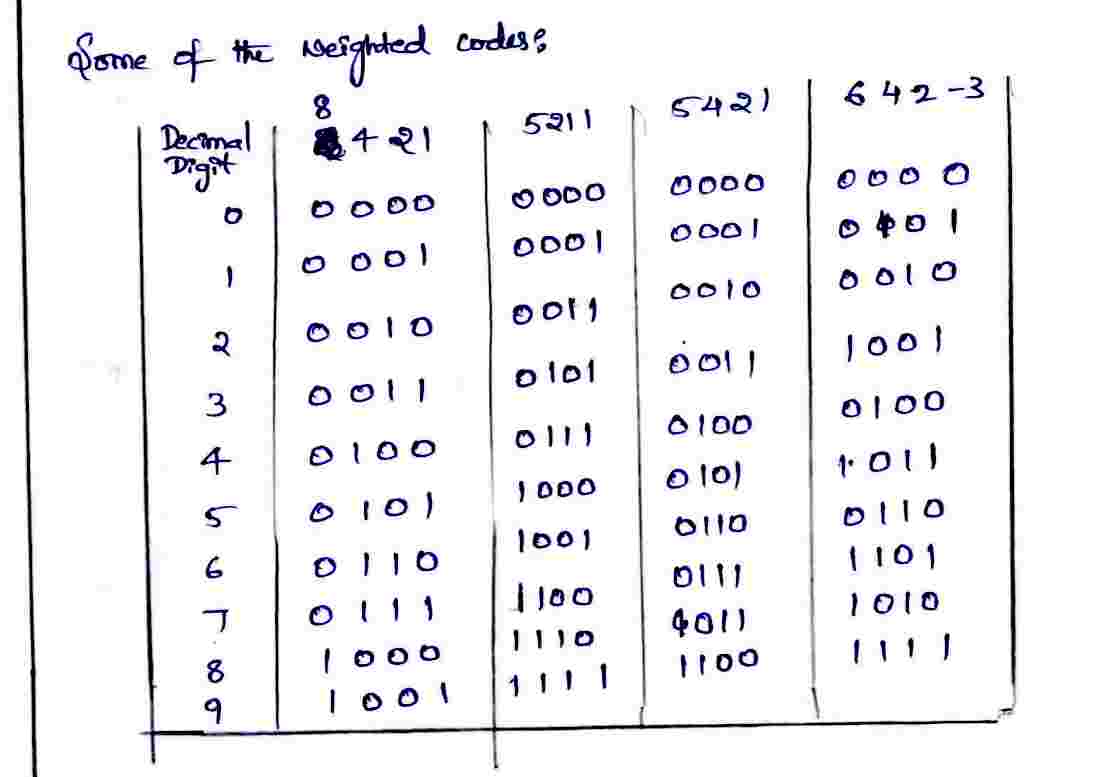 Some of the weighted codes:
Decimal Digit | 8 4 2 1 | 5211 | 5421 | 6 4 2 -3
0 | 0 0 0 0 | 0000 | 0000 | 000 0
1 | 0 001 | 0001 | 0001 | 0 101
2 | 0 0 1 0 | 0011 | 0010 | 0 010
3 | 0 0 1 1 | 0101 | 0011 | 1001
4 | 0 1 0 0 | 0111 | 0100 | 0100
5 | 0 101 | 1000 | 0101 | 1.011
6 | 0 1 1 0 | 1001 | 0110 | 0110
7 | 0 1 1 1 | 1100 | 0111 | 1101
8 | 1 0 0 0 | 1110 | 1011 | 1010
9 | 1 0 0 1 | 1111 | 1100 | 1111